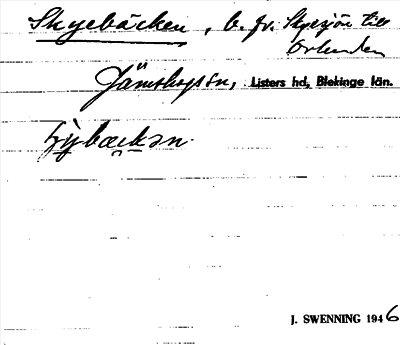 Skyebäcken, b. fr. Skyesjön till
Orlunden
Jämshögs sn, Listers hd, Blekinge län.
J. SWENNING 1946